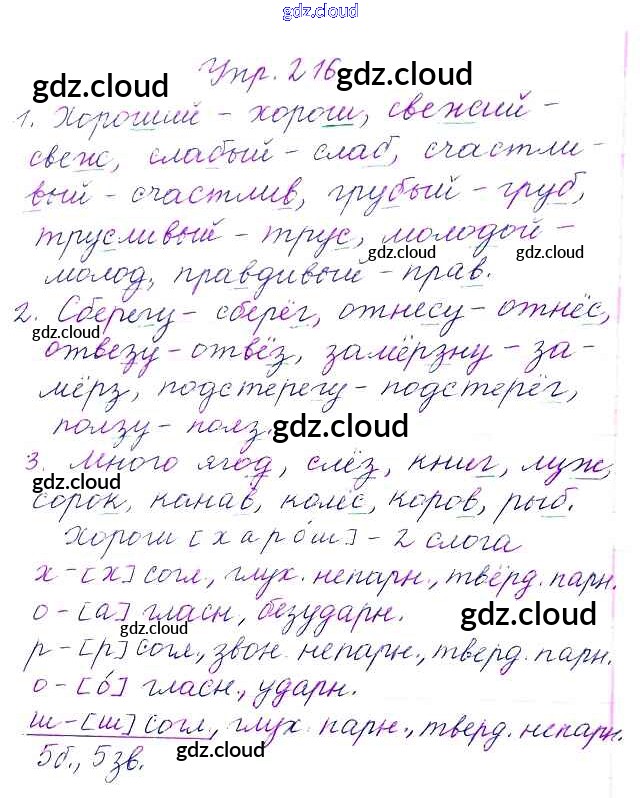 gdz.cloud
Упр. 216
gdz.cloud
gdz.cloud
1. Хороший - хорош, свежий -
свеж, слабый - слаб, счастли-
вый - счастлив, грубый - груб,
трусливый - трус, молодой -
gdz.cloud
gdz.cloud
молод, правдивый - прав.
2. Сберегу - сберёг, отнесу - отнёс,
gdz.cloud
отвезу - отвёз, замёрзну - за-
мёрз, подстерегу - подстерёг,
ползу - полз.
gdz.cloud
3. Много ягод, слёз, книг, луж,
gdz.cloud
сорок, канав, колёс, коров, рыб.
Хорош [харо́ш] - 2 слога
х - [х] согл., глух. непарн., твёрд. парн.
о - [а] гласн., безударн.
gdz.cloud
gdz.cloud
р - [р] согл., звон. непарн., тверд. парн.
о - [о́] гласн., ударн.
ш - [ш] согл., глух. парн., тверд. непарн.
5б., 5 зв.
gdz.cloud